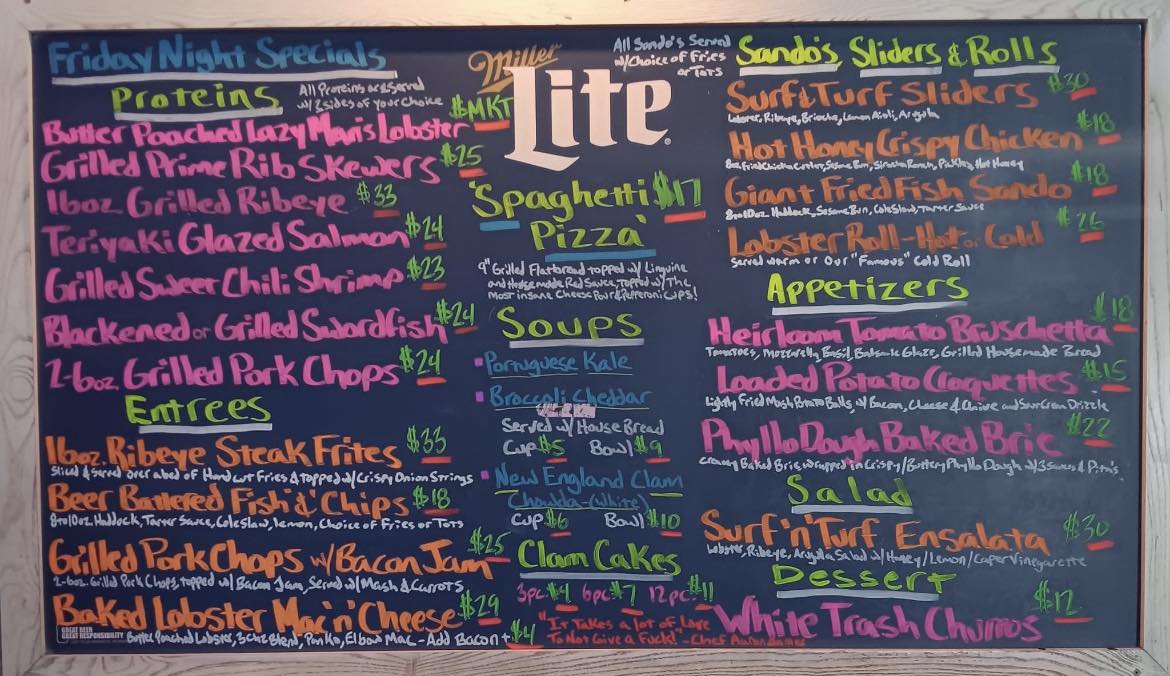 Friday Night Specials
Proteins
All Proteins are Served
w/2 sides of your choice
Butter Poached Lazy Man's Lobster $MKT
Grilled Prime Rib Skewers $25
16oz Grilled Ribeye $33
Teriyaki Glazed Salmon $24
Grilled Sweet Chili Shrimp $23
Blackened or Grilled Swordfish $24
2-6oz. Grilled Pork Chops $24
Entrees
16oz. Ribeye Steak Frites $33
Sliced & Served over a bed of Hand cut Fries & topped w/Crispy Onion Strings
Beer Battered Fish & Chips $18
8to10oz. Haddock, Tarter Sauce, Coleslaw, lemon, Choice of Fries or Tots
Grilled Pork Chops w/Bacon Jam $25
2-6oz. Grilled Pork Chops, topped w/ Bacon Jam, Served w/ Mash & Carrots
Baked Lobster Mac'n'Cheese $29
GREAT BEER
GREAT RESPONSIBILITY
Butter Poached Lobster, 3 Chz Blend, Panko, Elbow Mac - Add Bacon + $4
Miller
Lite
All Sando's Served
w/Choice of Fries
or Tots
"Spaghetti $17
Pizza"
9" Grilled Flatbread topped w/ Linguine
and Housemade Red Sauce, topped w/ The
most insane Cheese Pour & Pepperoni Cups!
Soups
Portuguese Kale
Broccoli Cheddar
Served w/ House Bread
Cup $5 Bowl $9
New England Clam
Chowda-(White)
Cup $6 Bowl $10
Clam Cakes
3pc. $4 6pc. $7 12pc. $11
"It Takes a lot of Love
To Not Give a Fuck!" -Chef Aaron
Sando's, Sliders & Rolls
Surf & Turf Sliders $30
Lobster, Ribeye, Brioche, Lemon Aioli, Arugula
Hot Honey Crispy Chicken $18
8oz. Fried Chicken Cutlet, Sesame Bun, Sriracha Ranch, Pickles, Hot Honey
Giant Fried Fish Sando $18
8to10oz. Haddock, Sesame Bun, Coleslaw, Tarter Sauce
Lobster Roll-Hot or Cold $26
Served warm or Our "Famous" Cold Roll
Appetizers
Heirloom Tomato Bruschetta $18
Tomatoes, Mozzarella, Basil, Balsamic Glaze, Grilled Housemade Bread
Loaded Potato Croquettes $15
lightly Fried Mash Potato Balls, w/ Bacon, Cheese & Chive and Sour Cream Drizzle
Phyllo Dough Baked Brie $22
creamy Baked Brie wrapped in Crispy/Buttery Phyllo Dough w/3 Sauces & Pita's
Salad
Surf'n'Turf Ensalata $30
Lobster, Ribeye, Arugula Salad w/ Honey/Lemon/Caper Vinegarette
Dessert
White Trash Churros $12